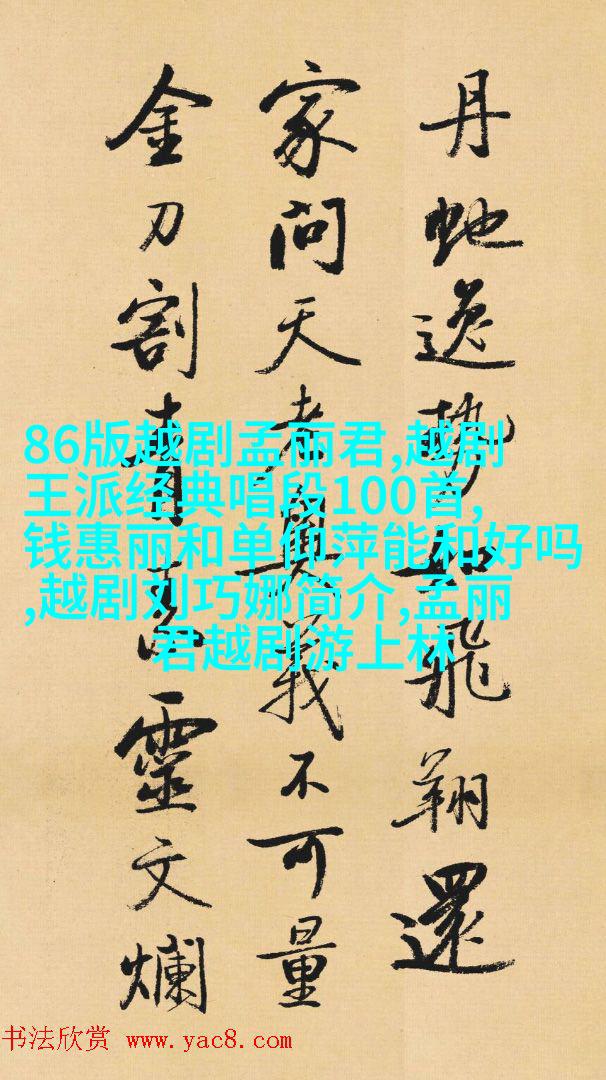 丹虵逸勢如飛翔還
家問天老奧義不可量
金刀割青素靈文爛
86版越剧孟丽君,越剧
王派经典唱段100首,
钱惠丽和单仰萍能和好吗
,越剧刘巧娜简介,孟丽
君越剧游上林
书法欣赏 www.yac8.com